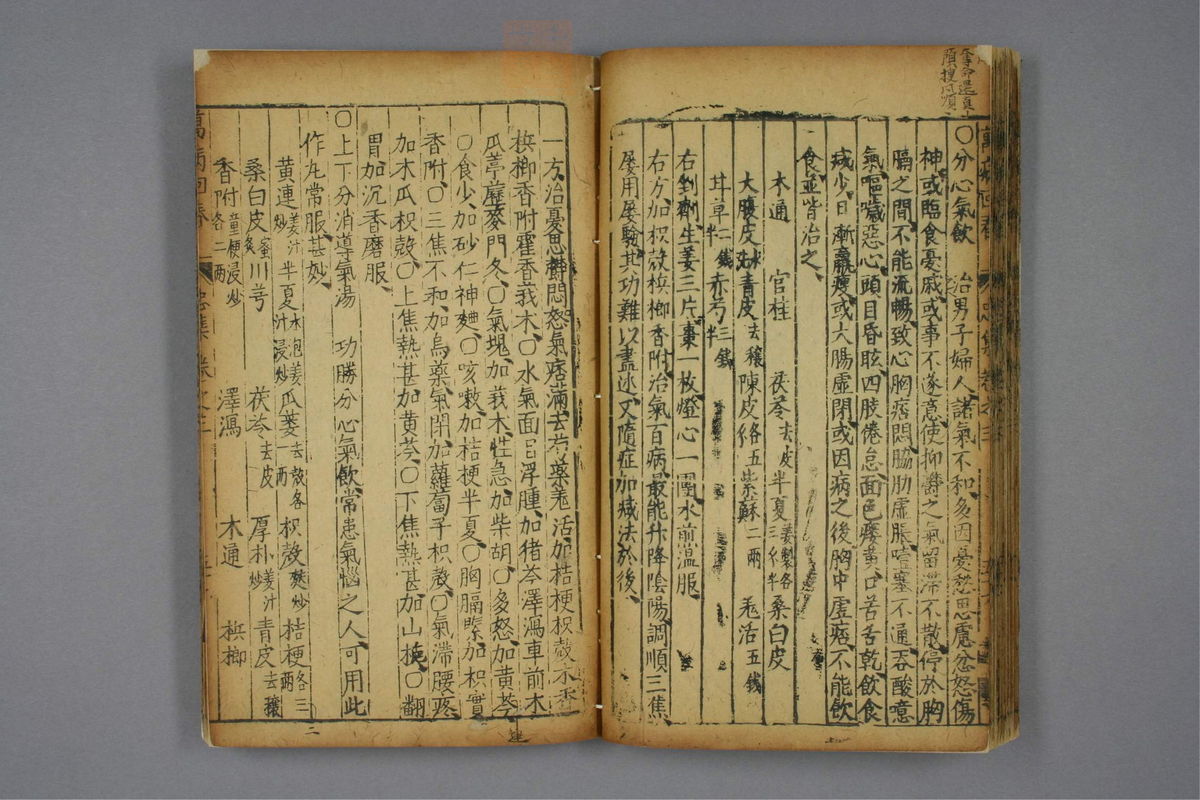 奪命還真
○分心氣飲 治男子婦人諸氣不和多因憂愁思慮忿怒傷
神或臨食憂戚或事不遂意使抑鬱之氣留滯不散停於胸
膈之間不能流暢致心胸痞悶脇肋虛脹噎塞不通吞酸噫
氣嘔噦惡心頭目昏眩四肢倦怠面色痿黃口苦舌乾飲食
減少日漸羸瘦或大陽虛閉或因病之後胸中虛痞不能飲
食並皆治之
木通 官桂 茯苓去皮半夏姜製各三錢半桑白皮
大腹皮 青皮去穰陳皮各五紫蘇二兩 羌活五錢
甘草二錢半赤芍三錢半
右剉劑生姜三片棗一枚燈心一團水煎溫服
右方加枳殼梹榔香附治氣百病最能升降陰陽調順三焦
屢用屢驗其功難以盡述又隨症加減法於後
一方治憂思鬱悶怒氣痞滿去芍藥羌活加桔梗枳殼木香
梹榔香附霍香莪木○水氣面目浮腫加猪苓澤瀉車前木
瓜葶藶麥門冬○氣塊加莪木性急加柴胡○多怒加黃芩
○食少加砂仁神麯○咳嗽加桔梗半夏○胸膈緊加枳實
香附○三焦不和加烏藥氣閉加蘿蔔子枳殼○氣滯腰疼
加木瓜枳殼○上焦熱甚加黃芩○下焦熱甚加山梔○翻
胃加沉香磨服
○上下分消導氣湯 功勝分心氣飲常患氣惱之人可用此
作丸常服甚妙
黃連姜汁炒半夏水泡姜汁浸炒瓜蔞去殼各一兩枳殼麩炒桔梗各三兩
桑白皮蜜炙川芎 茯苓去皮 厚朴姜汁炒青皮去穰
香附童便浸炒各二兩 澤瀉 木通 梹榔
萬病回春